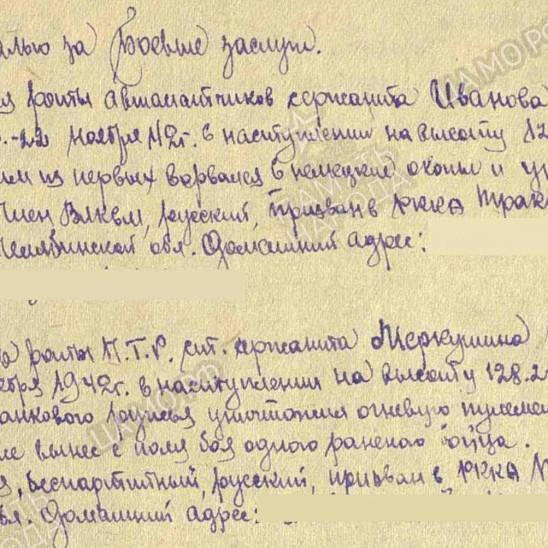 алью за Боевые заслуги.
роты автоматчиков сержанта Иванова
-22 ноября 42г. в наступлении на высоту 12
из первых ворвался в немецкие окопы и
Член ВЛКСМ, русский, призван в РККА Трак
Челябинской обл. Домашний адрес:
роты П.Т.Р. ст. сержанта Меркушина
1942г. в наступлении на высоту 128.2
танкового ружья уничтожил огневую пулемет
вынес с поля боя одного раненого бойца.
беспартийный, русский, призван в РККА
Домашний адрес: